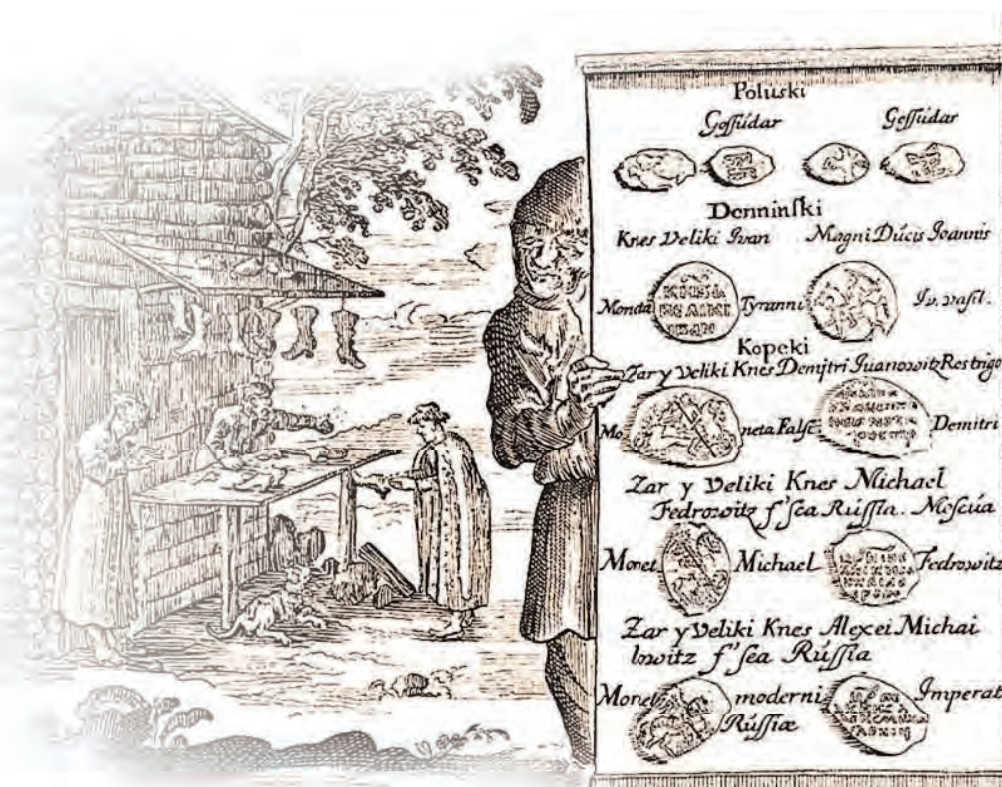 Poluski
Gossudar Gossudar
Denninski
Knes Veliki Ivan Magni Ducis Joannis
Moneta Tyranni Iv. vasil.
Kopeki
Zar y Veliki Knes Demjtri Juanowitz Rostrigo
Mo neta Falsc Demitri
Zar y Veliki Knes Michael
Fedrowitz f'sea Rússia. Moscúa
Monet Michael Fedrowitz
Zar y Veliki Knes Alexei Michai
lowitz f'sea Rússia
Monet moderni Imperat
Rússiæ